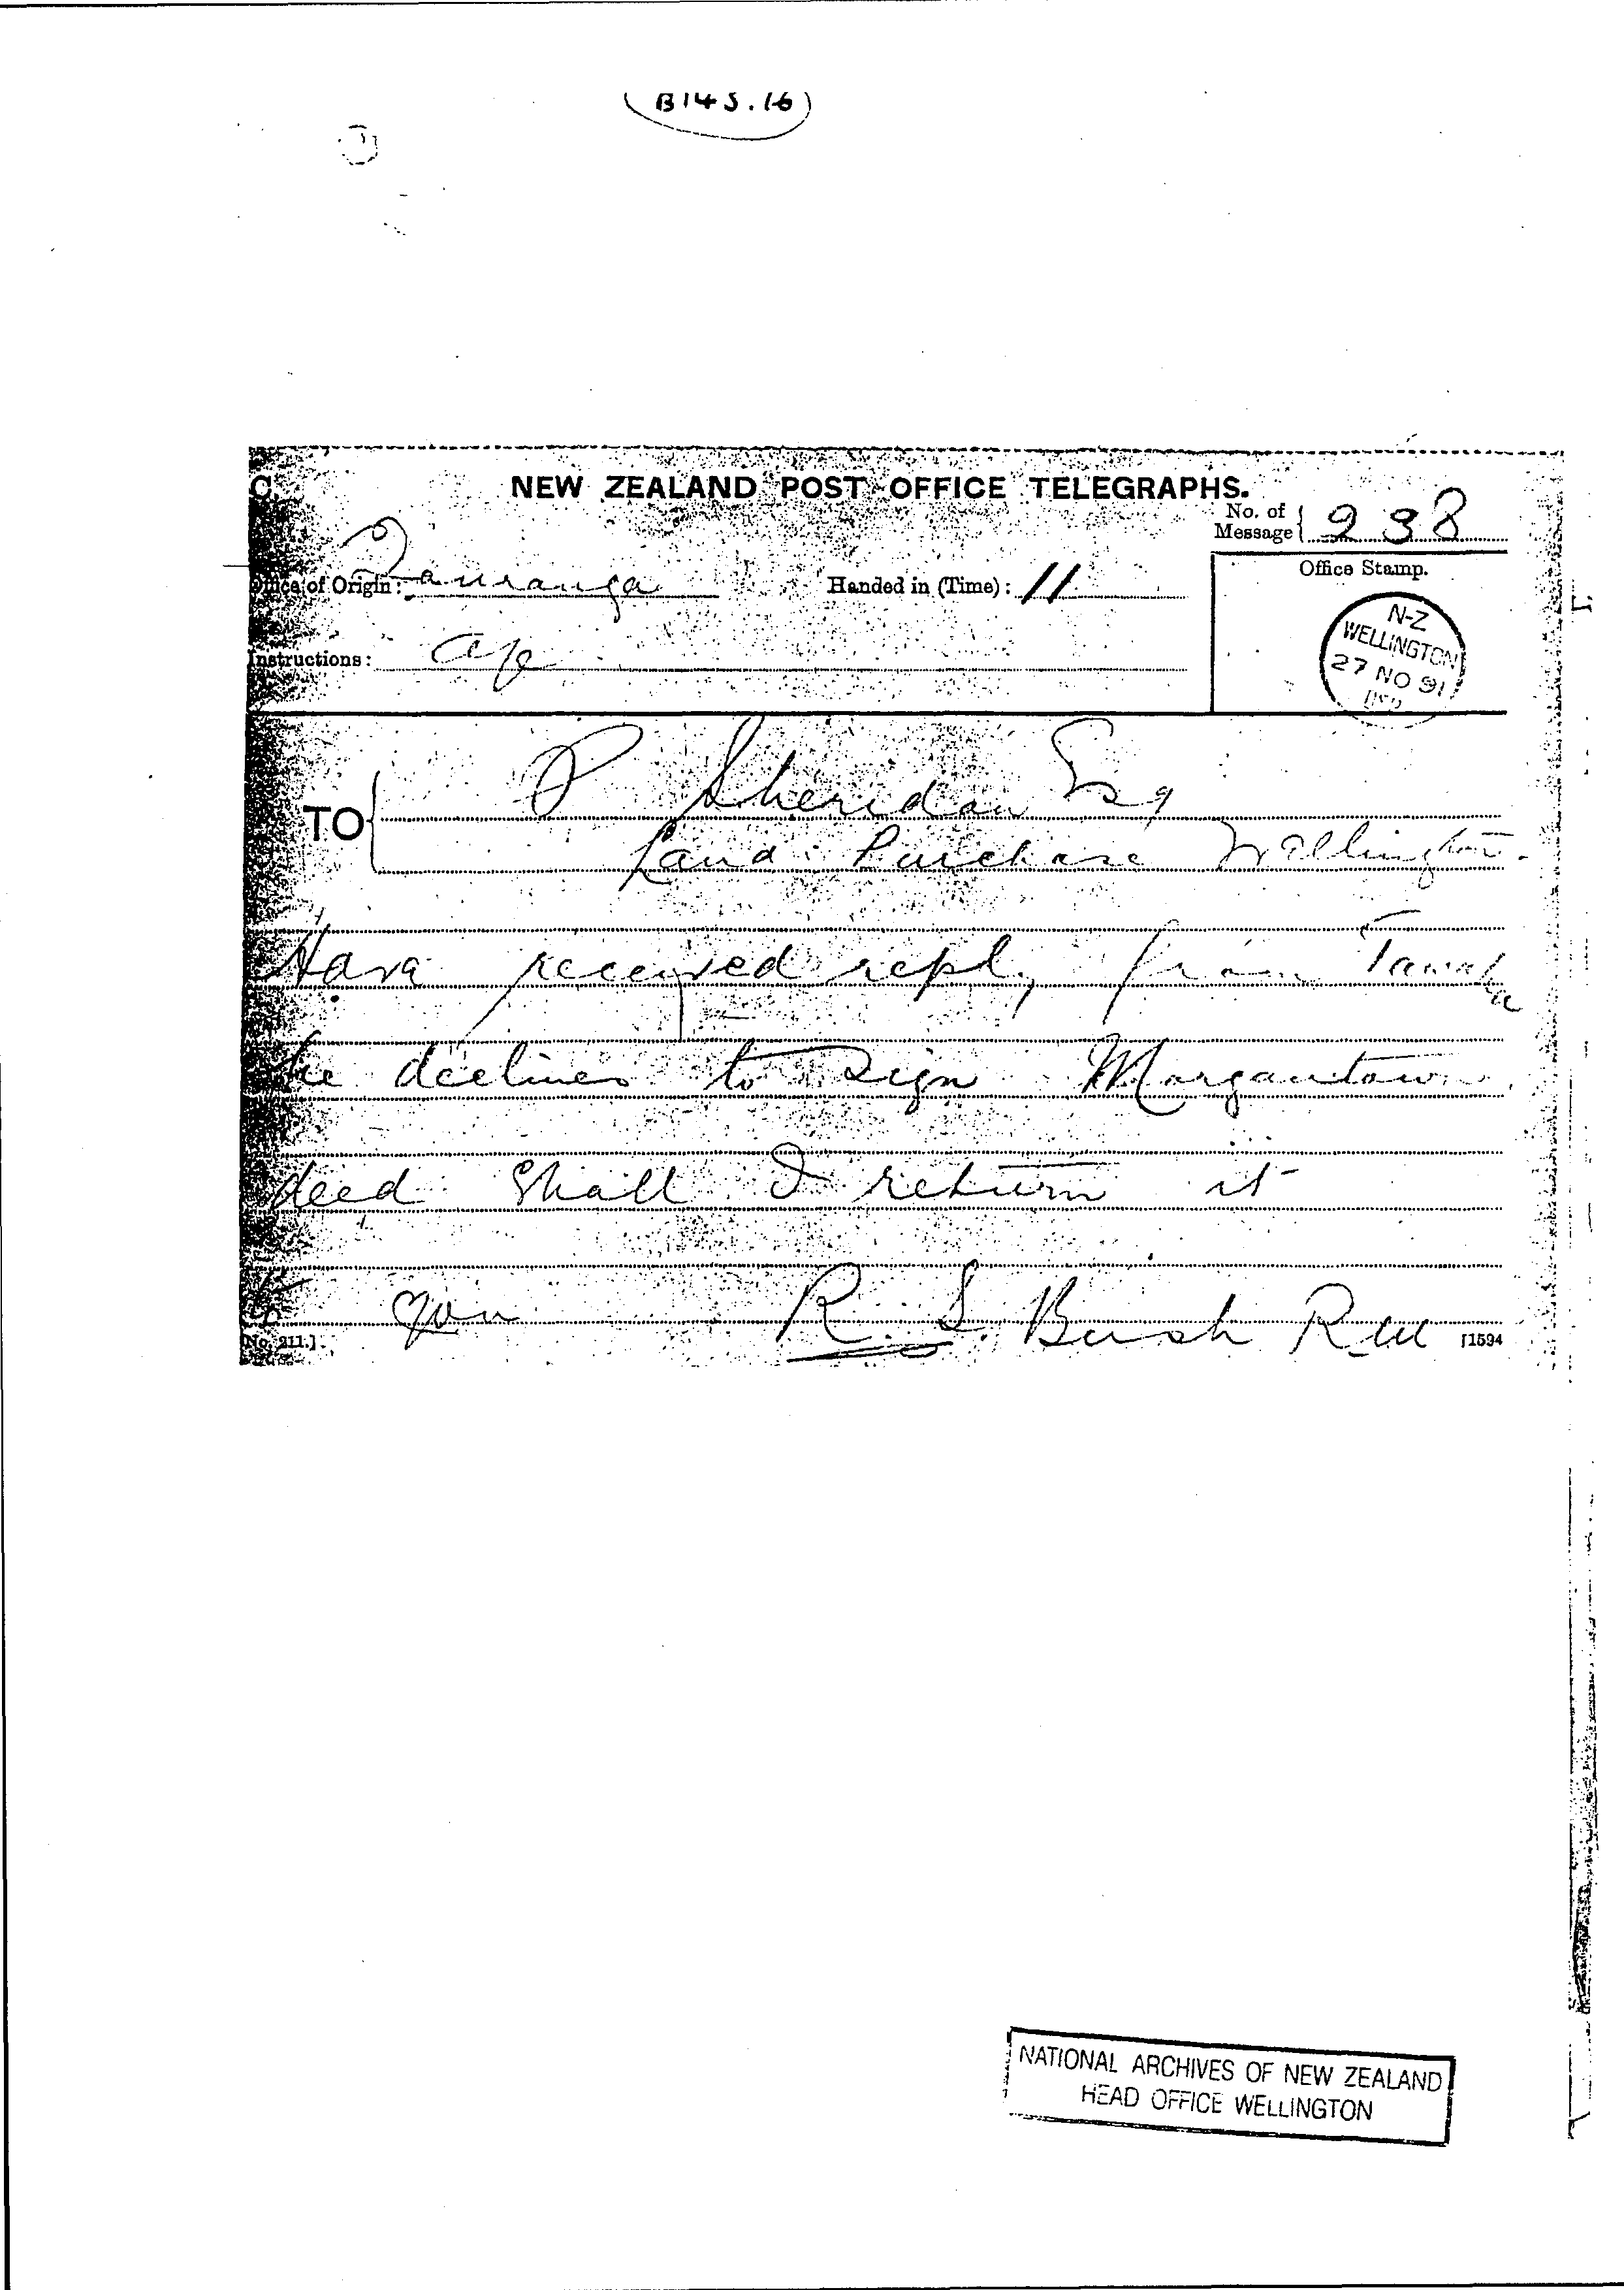 (B145.16)
NEW ZEALAND POST OFFICE TELEGRAPHS.
No. of
Message 238
Office of Origin: Tauranga Handed in (Time): 11
Office Stamp.
N-Z
WELLINGTON
27 NO 91
Instructions:
TO P Sheridan Esq
Land Purchase Wellington
Have received reply from
he declines to sign Morgantown
deed Shall I return it
R. S. Bush RM
[No. 211.] [1594
NATIONAL ARCHIVES OF NEW ZEALAND
HEAD OFFICE WELLINGTON